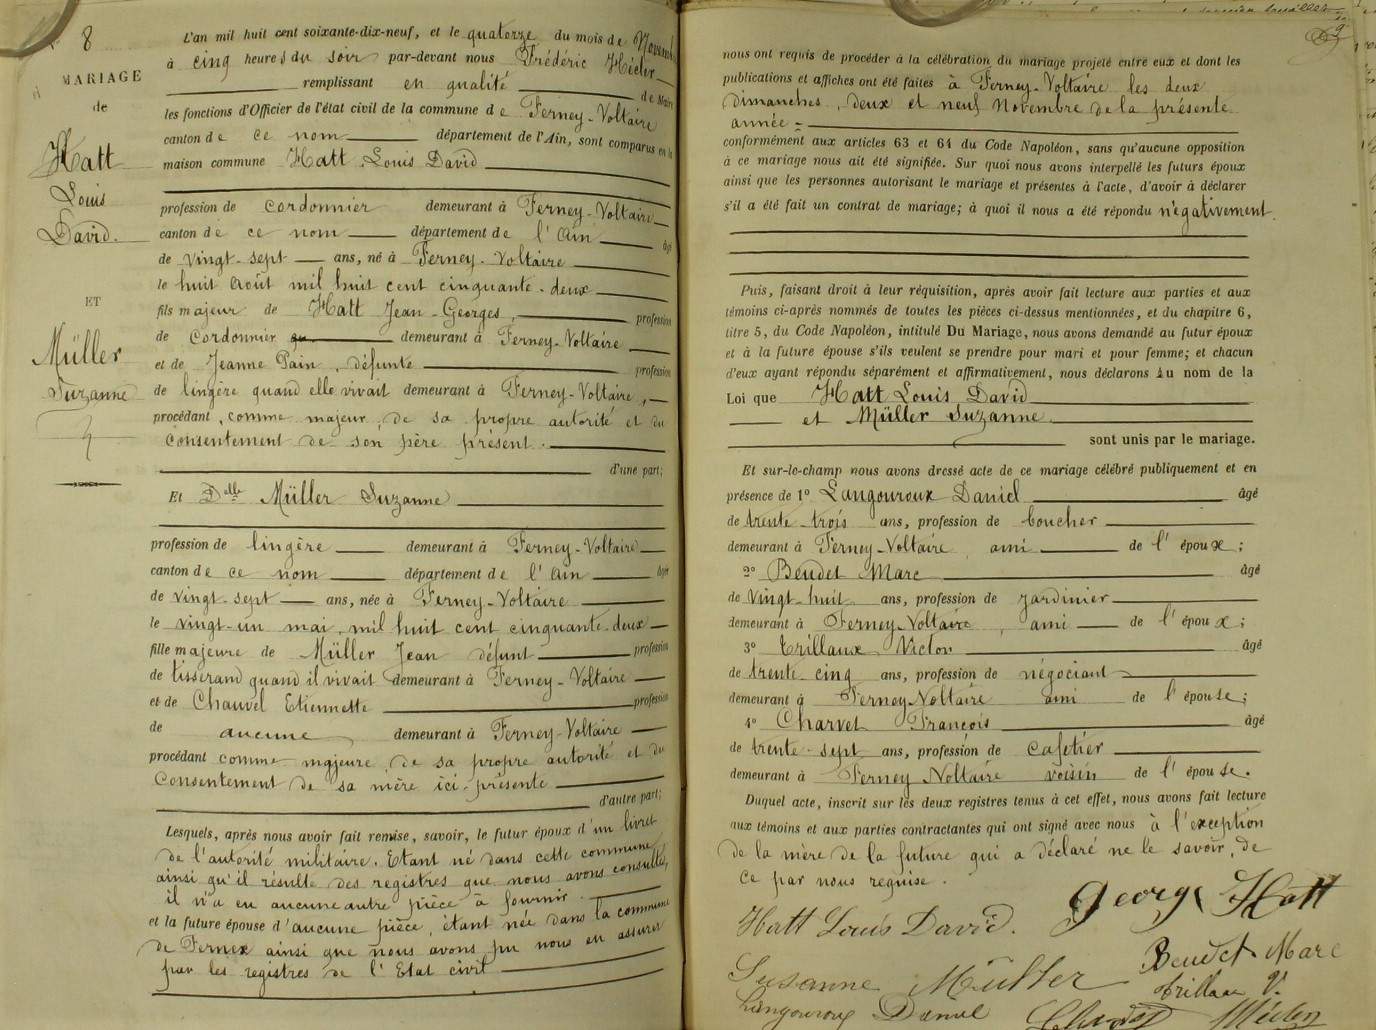 8
MARIAGE
de
Hatt
Louis
David.
ET
Müller
Suzanne
L'an mil huit cent soixante-dix-neuf, et le quatorze du mois de Novembre
à cinq heures du soir par-devant nous Frédéric
remplissant en qualité de Maire
les fonctions d'Officier de l'état civil de la commune de Ferney-Voltaire
canton de ce nom département de l'Ain, sont comparus en la
maison commune Hatt Louis David
profession de cordonnier demeurant à Ferney-Voltaire
canton de ce nom département de l'Ain âgé
de vingt-sept ans, né à Ferney-Voltaire
le huit Août mil huit cent cinquante-deux
fils majeur de Hatt Jean-Georges, profession
de Cordonnier demeurant à Ferney-Voltaire
et de Jeanne Pain, défunte profession
de lingère quand elle vivait demeurant à Ferney-Voltaire,
procédant, comme majeur, de sa propre autorité et du
consentement de son père présent.
d'une part;
Et Delle Müller Suzanne
profession de lingère demeurant à Ferney-Voltaire
canton de ce nom département de l'Ain âgée
de vingt-sept ans, née à Ferney-Voltaire
le vingt-un mai, mil huit cent cinquante-deux
fille majeure de Müller Jean défunt profession
de tisserand quand il vivait demeurant à Ferney-Voltaire
et de Chauvel Etiennette profession
de aucune demeurant à Ferney-Voltaire
procédant comme majeure, de sa propre autorité et du
Consentement de sa mère ici-présente
d'autre part;
Lesquels, après nous avoir fait remise, savoir, le futur époux d'un livret
de l'autorité militaire. Etant né dans cette commune
ainsi qu'il résulte des registres que nous avons consultés,
il n'a eu aucune autre pièce à fournir.
et la future épouse d'aucune pièce, étant née dans la commune
de Fernex ainsi que nous avons pu nous en assurer
par les registres de l'Etat civil
9
nous ont requis de procéder à la célébration du mariage projeté entre eux et dont les
publications et affiches ont été faites à Ferney-Voltaire les deux
dimanches, deux et neuf Novembre de la présente
année
conformément aux articles 63 et 64 du Code Napoléon, sans qu'aucune opposition
à ce mariage nous ait été signifiée. Sur quoi nous avons interpellé les futurs époux
ainsi que les personnes autorisant le mariage et présentes à l'acte, d'avoir à déclarer
s'il a été fait un contrat de mariage; à quoi il nous a été répondu négativement.
Puis, faisant droit à leur réquisition, après avoir fait lecture aux parties et aux
témoins ci-après nommés de toutes les pièces ci-dessus mentionnées, et du chapitre 6,
titre 5, du Code Napoléon, intitulé Du Mariage, nous avons demandé au futur époux
et à la future épouse s'ils veulent se prendre pour mari et pour femme; et chacun
d'eux ayant répondu séparément et affirmativement, nous déclarons au nom de la
Loi que Hatt Louis David
et Müller Suzanne
sont unis par le mariage.
Et sur-le-champ nous avons dressé acte de ce mariage célébré publiquement et en
présence de 1° Langouroux Daniel âgé
de trente-trois ans, profession de boucher
demeurant à Ferney-Voltaire, ami de l'époux;
2° Beudet Marc âgé
de vingt-huit ans, profession de jardinier
demeurant à Ferney-Voltaire, ami de l'époux;
3° Trillaux Victor âgé
de trente-cinq ans, profession de négociant
demeurant à Ferney Voltaire ami de l'épouse;
4° Charvet François âgé
de trente-sept ans, profession de cafetier
demeurant à Ferney Voltaire voisin de l'épouse.
Duquel acte, inscrit sur les deux registres tenus à cet effet, nous avons fait lecture
aux témoins et aux parties contractantes qui ont signé avec nous à l'exception
de la mère de la future qui a déclaré ne le savoir, de
ce par nous requise.
George Hatt
Hatt Louis David.
Beudet Marc
Susanne Müller
Trillaux V.
Langouroux Daniel